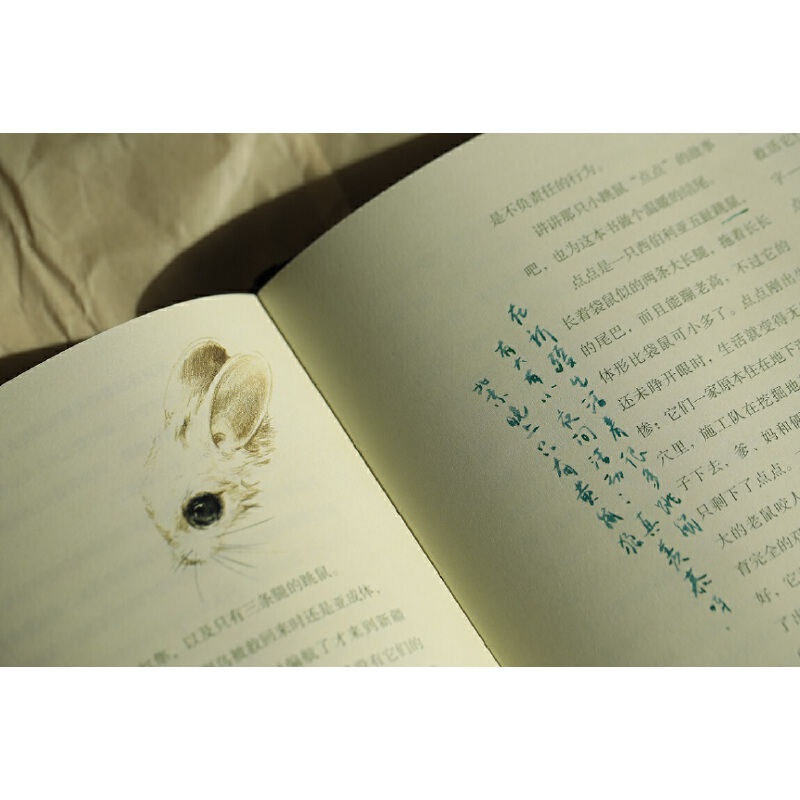 隼，以及只有三条腿的跳鼠。
鸟被救回来时还是亚成体，
偏航了才来到新疆
没有它们的
是不负责任的行为。
讲讲那只小跳鼠“点点”的故事
吧，也为这本书做个温暖的结尾。
点点是一只西伯利亚五趾跳鼠，
长着袋鼠似的两条大长腿，拖着长长
的尾巴，而且能蹦老高，不过它的
体形比袋鼠可小多了。点点刚出生
还未睁开眼时，生活就变得无
惨：它们一家原本住在地下
穴里，施工队在挖掘地
子下去，爹、妈和俩
只剩下了点点。
大的老鼠咬人
育完全的双
好，它
了出
在新疆生活着很多跳鼠
有大有小夜间活动：真羡慕呀.
北京晚上只有黄鼠狼
救活它
字一